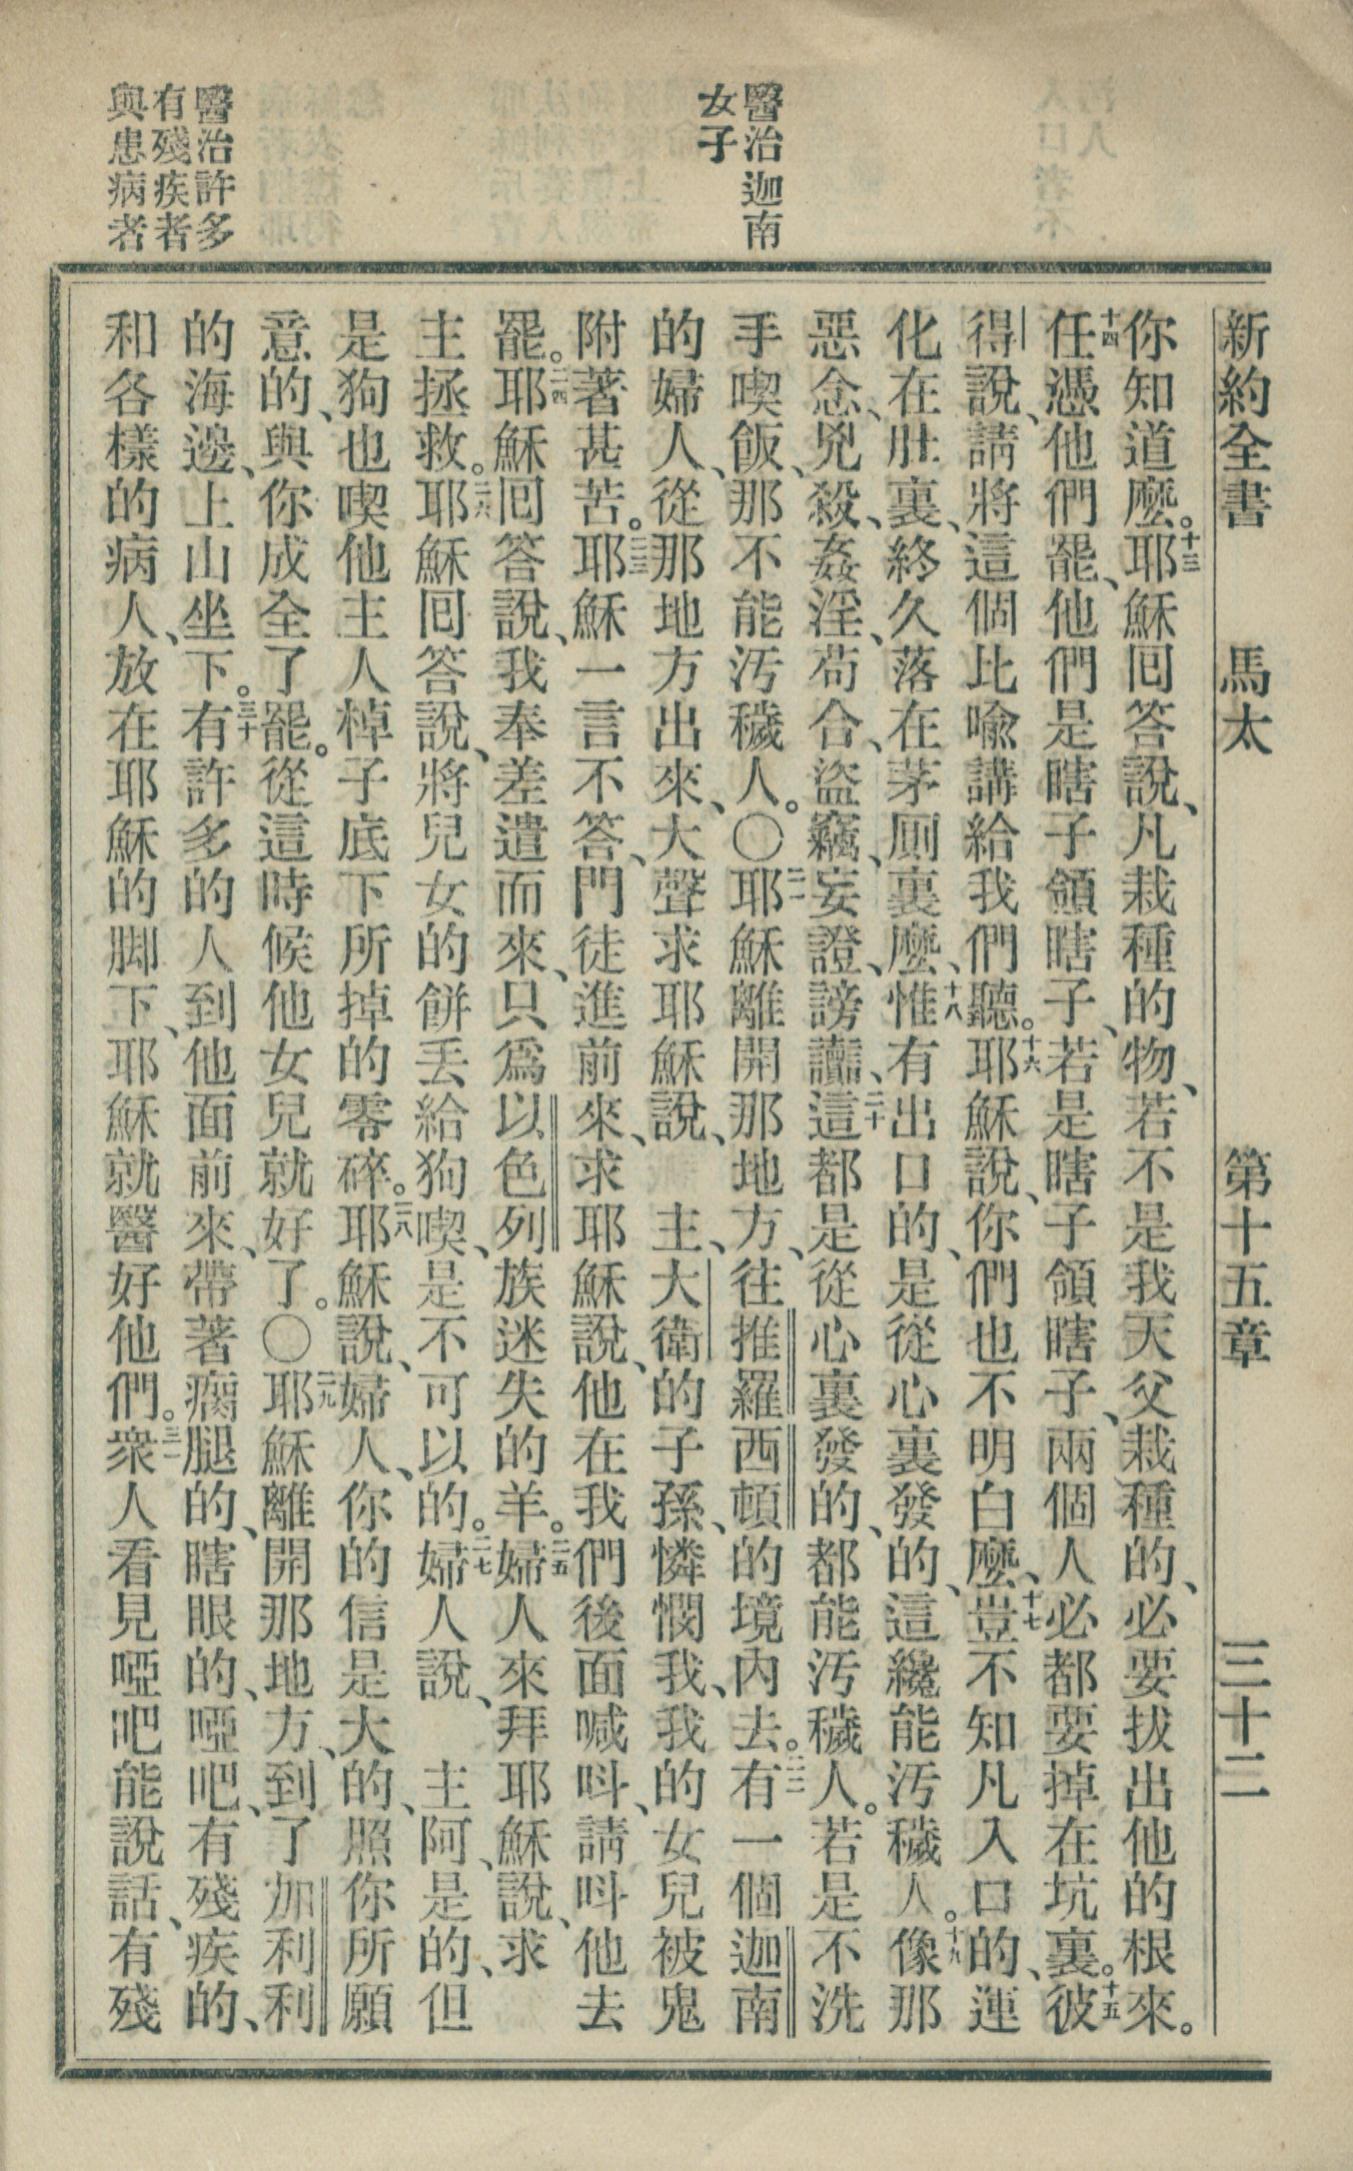 新約全書　馬太　第十五章　三十二
醫治迦南
女子
醫治許多
有殘疾者
與患病者
你知道麼。十三耶穌囘答說、凡栽種的物、若不是我天父栽種的、必要拔出他的根來。
十四任憑他們罷、他們是瞎子領瞎子、若是瞎子領瞎子、兩個人必都要掉在坑裏。十五彼
得說、請將這個比喩講給我們聽。十六耶穌說、你們也不明白麼、十七豈不知凡入口的、運
化在肚裏、終久落在茅厠裏麼、十八惟有出口的、是從心裏發的、這纔能汚穢人。十九像那
惡念、兇殺、姦淫、苟合、盜竊、妄證、謗讟、二十這都是從心裏發的、都能汚穢人。若是不洗
手喫飯、那不能汚穢人。〇二一耶穌離開那地方、往推羅西頓的境內去。二二有一個迦南
的婦人、從那地方出來、大聲求耶穌說、　主、大衛的子孫、憐憫我、我的女兒被鬼
附著甚苦。二三耶穌一言不答、門徒進前來、求耶穌說、他在我們後面喊呌、請呌他去
罷。二四耶穌囘答說、我奉差遣而來、只爲以色列族迷失的羊。二五婦人來拜耶穌說、求
主拯救。二六耶穌囘答說、將兒女的餅丟給狗喫、是不可以的。二七婦人說、　主阿、是的、但
是狗也喫他主人棹子底下所掉的零碎。二八耶穌說、婦人、你的信是大的、照你所願
意的、與你成全了罷。從這時候他女兒就好了。〇二九耶穌離開那地方、到了加利利
的海邊、上山坐下。三十有許多的人到他面前來、帶著瘸腿的、瞎眼的、啞吧、有殘疾的、
和各樣的病人、放在耶穌的脚下、耶穌就醫好他們。三一衆人看見啞吧能說話、有殘